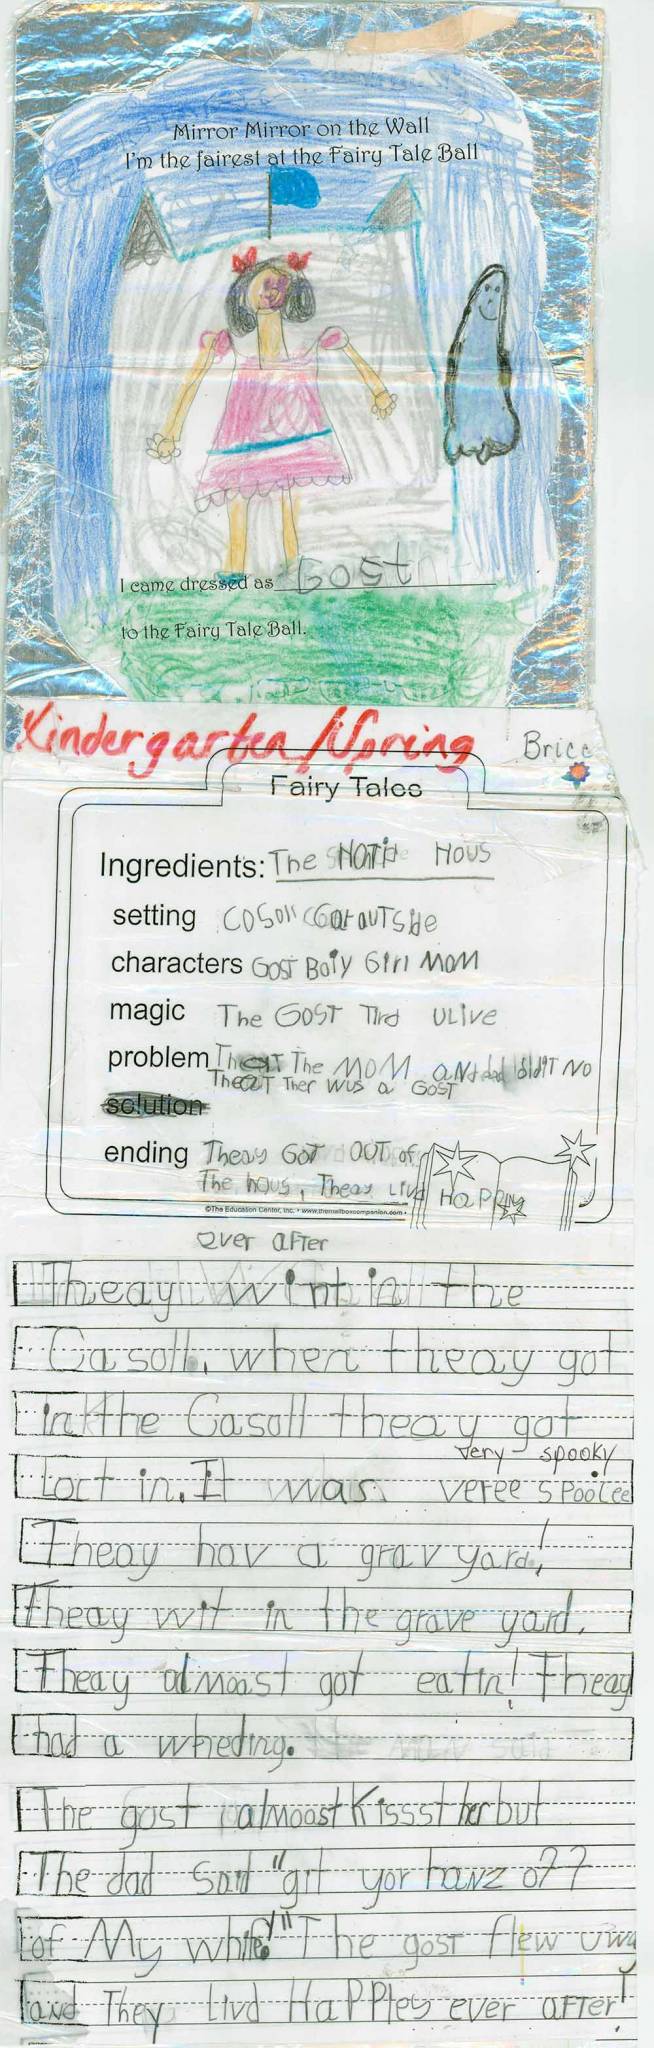 Mirror Mirror on the Wall
I'm the fairest at the Fairy Tale Ball
I came dressed as Gost
to the Fairy Tale Ball.
Kindergarten/Spring Brice
Fairy Tales
Ingredients: The Hous
setting outside
characters Gost Boiy Girl Mom
magic The Gost Tird ulive
problem The Mom and dad didit no
Theat Ther wus a Gost
solution
ending Theay Got out of
The hous, Theay Livd Happley
©The Education Center, Inc. • www.themailboxcompanion.com •
ever after
Theay wint in the
Casoll. when theay got
in the Casoll theay got
very spooky
Loct in. It was veree spoolee
Theay hav a grav yard!
Theay wit in the grave yard.
Theay almoast got eatin! Theay
had a wheding.
The gost almoost Kissst her but
The dad Said "git yor hanz off
of My whife!" The gost flew uwy
and They Livd Happley ever after!